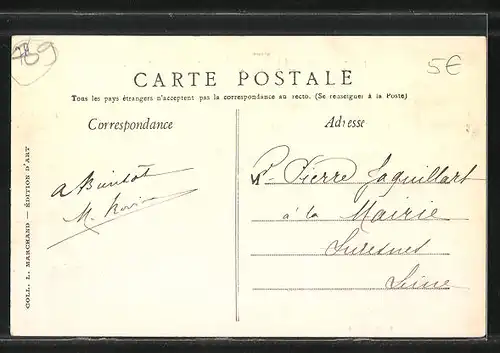 789
5€
CARTE POSTALE
Tous les pays étrangers n'acceptent pas la correspondance au recto. (Se renseigner à la Poste)
Correspondance
Adresse
a Bientôt
M.
Pierre Jaquillart
à la Mairie
Suresnes
Seine
COLL. L. MARCHAND — ÉDITION D'ART